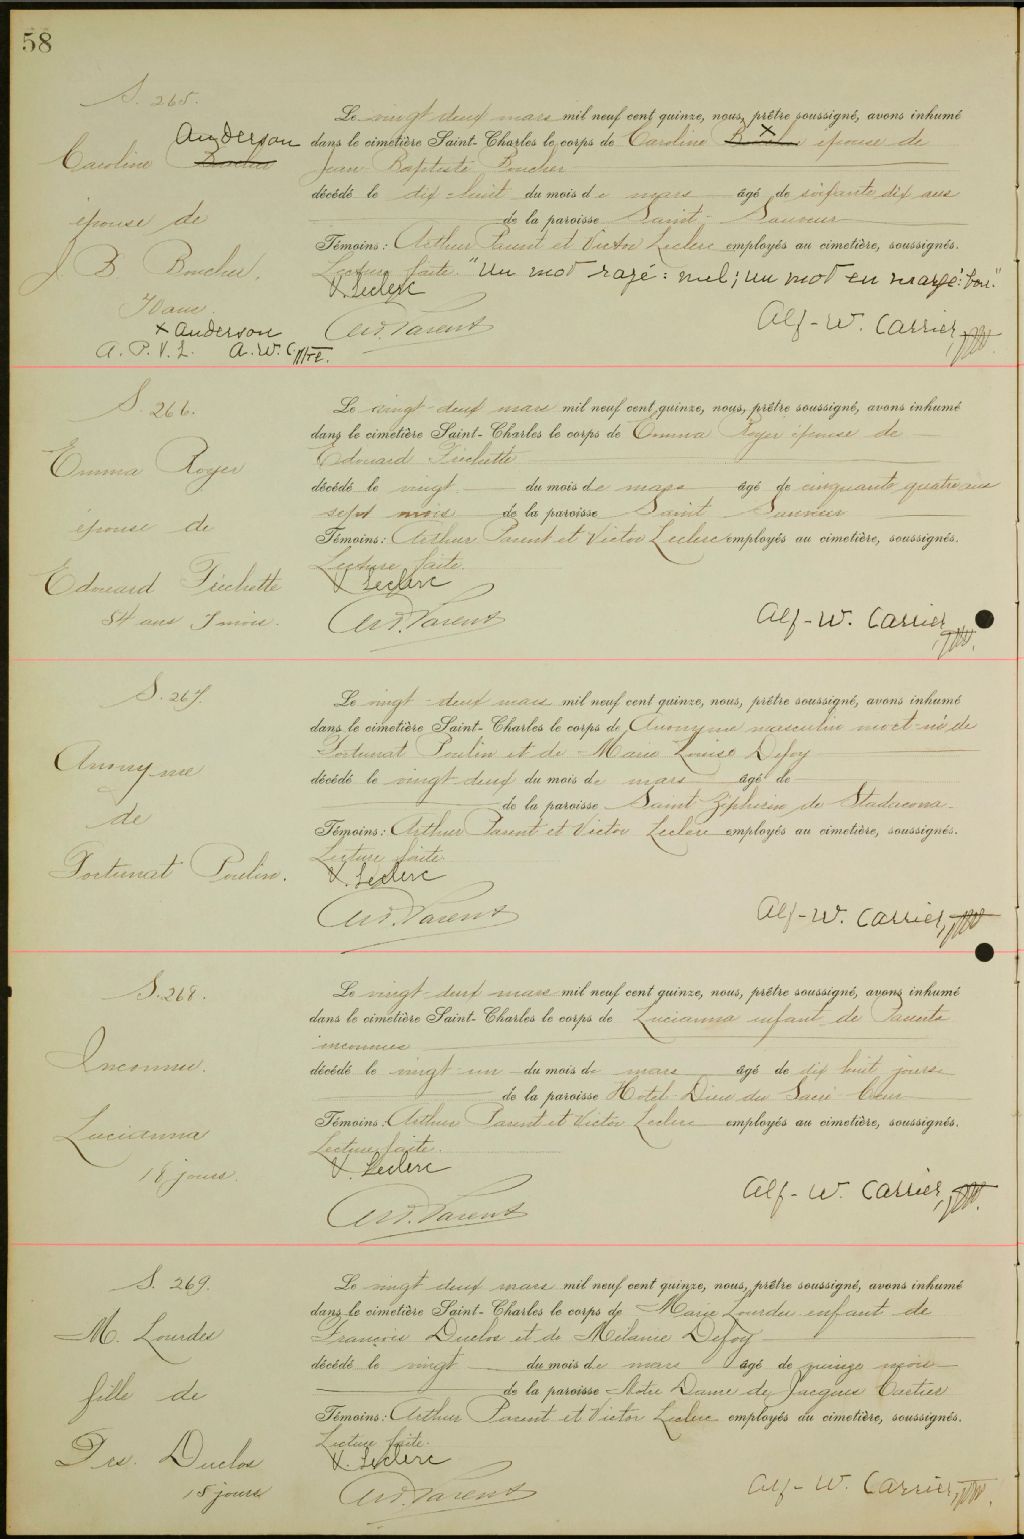 58
S. 265.
Anderson
Caroline Boucher
épouse de
J. B. Boucher.
70 ans
x Anderson
A. P. V. L. A. W. C. ptre.
Le vingt deux mars mil neuf cent quinze, nous, prêtre soussigné, avons inhumé
dans le cimetière Saint-Charles le corps de Caroline x épouse de
Jean Baptiste Boucher
décédé le dix-huit du mois de mars âgé de soixante dix ans
de la paroisse Saint-Sauveur
Témoins: Arthur Parent et Victor Leclerc employés au cimetière, soussignés.
Lecture faite. "Un mot rayé: nul; un mot en marge: bon."
V. Leclerc
Art. Parent
Alf-W. Carrier, ptre.
S. 266.
Emma Royer
épouse de
Edouard Fréchette
54 ans 7 mois.
Le vingt deux mars mil neuf cent quinze, nous, prêtre soussigné, avons inhumé
dans le cimetière Saint-Charles le corps de Emma Royer épouse de
Edouard Fréchette
décédé le vingt du mois de mars âgé de cinquante quatre ans
sept mois de la paroisse Saint Sauveur
Témoins: Arthur Parent et Victor Leclerc employés au cimetière, soussignés.
Lecture faite.
V. Leclerc
Art. Parent
Alf-W. Carrier, ptre.
S. 267.
Anonyme
de
Fortunat Poulin.
Le vingt-deux mars mil neuf cent quinze, nous, prêtre soussigné, avons inhumé
dans le cimetière Saint-Charles le corps de Anonyme masculin mort-né de
Fortunat Poulin et de Marie Louise Defoy
décédé le vingt deux du mois de mars âgé de
de la paroisse Saint Zéphirin de Stadacona
Témoins: Arthur Parent et Victor Leclerc employés au cimetière, soussignés.
Lecture faite.
V. Leclerc
Art. Parent
Alf-W. Carrier, ptre.
S. 268.
Inconnu.
Lucianna
18 jours.
Le vingt-deux mars mil neuf cent quinze, nous, prêtre soussigné, avons inhumé
dans le cimetière Saint-Charles le corps de Lucianna enfant de Parents
inconnus
décédé le vingt-un du mois de mars âgé de dix huit jours
de la paroisse Hotel-Dieu du Sacré-Cœur
Témoins: Arthur Parent et Victor Leclerc employés au cimetière, soussignés.
Lecture faite.
V. Leclerc
Art. Parent
Alf-W. Carrier, ptre.
S. 269.
M. Lourdes
fille de
Frs. Duclos
15 jours
Le vingt deux mars mil neuf cent quinze, nous, prêtre soussigné, avons inhumé
dans le cimetière Saint-Charles le corps de Marie Lourdes enfant de
François Duclos et de Mélanie Defoy
décédé le vingt du mois de mars âgé de quinze mois
de la paroisse Notre Dame de Jacques Cartier
Témoins: Arthur Parent et Victor Leclerc employés au cimetière, soussignés.
Lecture faite.
V. Leclerc
Art. Parent
Alf-W. Carrier, ptre.